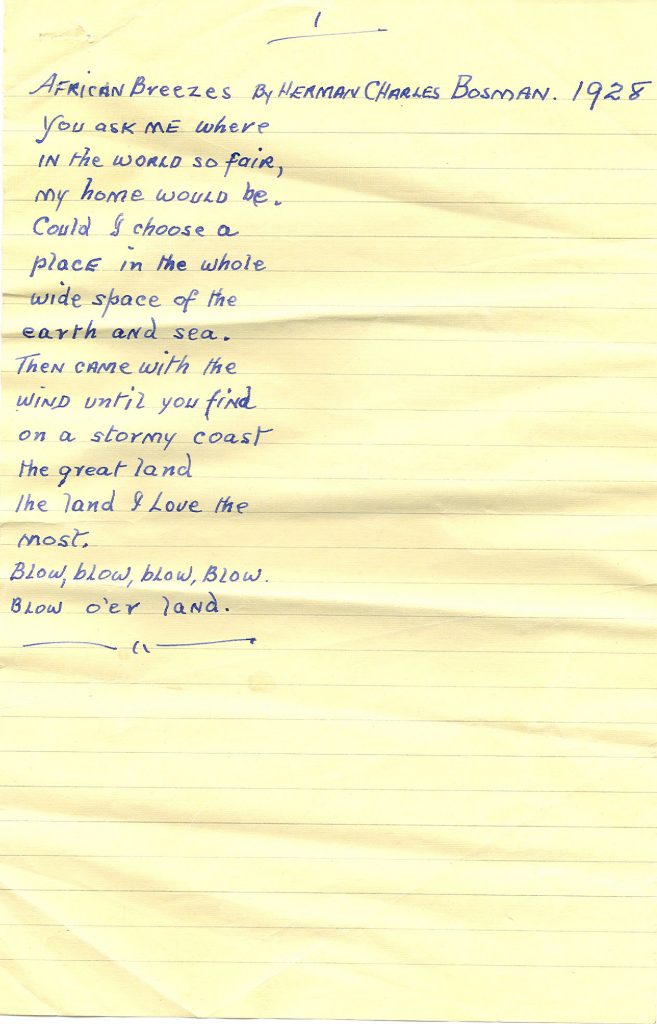 1
AFRICAN Breezes By HERMAN CHARLES BOSMAN. 1928
You ask ME where
IN the WORLD so fair,
my home WOULD be.
Could I choose a
place in the whole
wide space of the
earth and sea.
Then came with the
WIND until you find
on a stormy coast
the great land
the land I Love the
most.
Blow, blow, blow, Blow.
Blow o'er land.